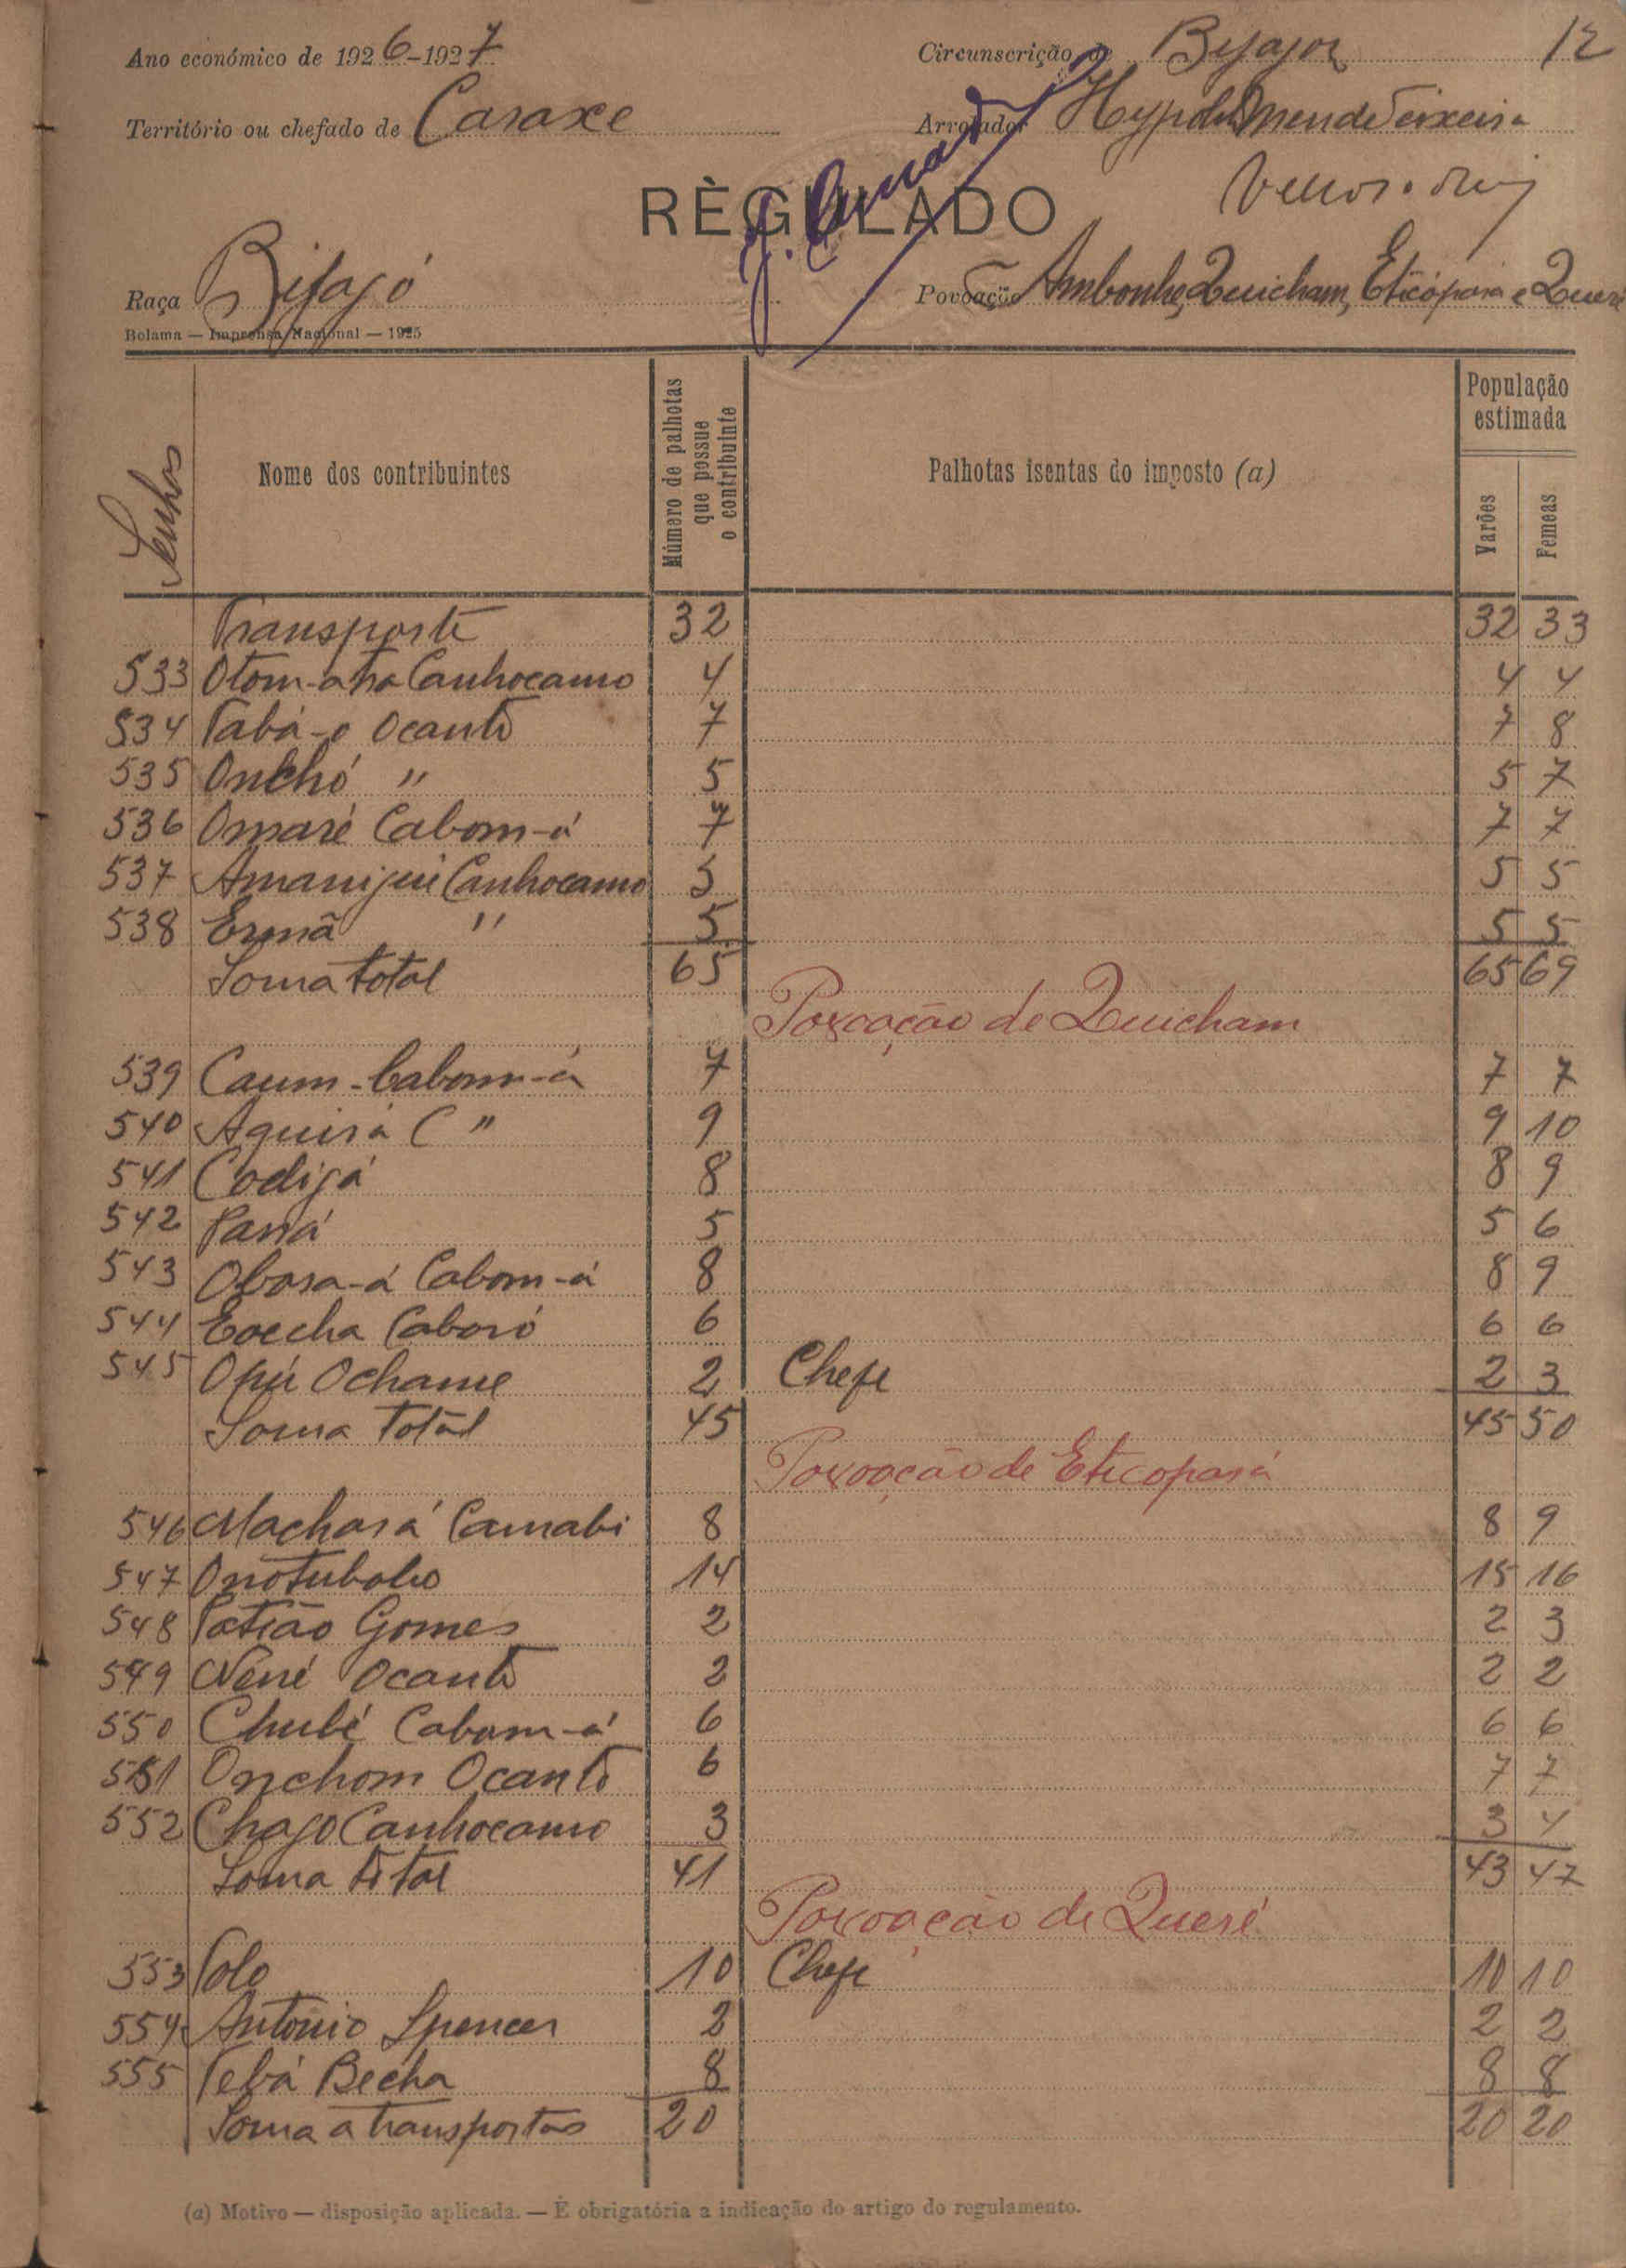 Ano económico de 1926-1927 Circunscrição de Bijagoz 12
Território ou chefado de Caraxe Arrolador Hypolito Mendes Teixeira
RÈGULADO
Raça Bijagó Povoação Ambonhe, Quicham, Eticópara e Queré
Bolama — Imprensa Nacional — 1925
Senhas Nome dos contribuintes Número de palhotas que possue o contribuinte Palhotas isentas do imposto (a) População estimada Varões Femeas
Transporte 32 32 33
533 Otom-ana Canhocamo 4 4 4
534 Tabá-o Ocantó 7 7 8
535 Onchó " 5 5 7
536 Omaré Cabom-á 7 7 7
537 Amanijui Canhocamo 5 5 5
538 Ermã " 5 5 5
Soma total 65 65 69
Povoação de Quicham
539 Caum-Cabom-á 7 7 7
540 Aquirá C " 9 9 10
541 Codijá 8 8 9
542 Parrá 5 5 6
543 Obosa-á Cabom-á 8 8 9
544 Eoecha Caboró 6 6 6
545 Opú Ochame 2 Chefe 2 3
Soma total 45 45 50
Povoação de Eticopará
546 Machará Camabi 8 8 9
547 Onotuboho 14 15 16
548 Patião Gomes 2 2 3
549 Nené Ocantó 2 2 2
550 Chubé Cabom-á 6 6 6
551 Onchom Ocantó 6 7 7
552 Chago Canhocamo 3 3 4
Soma total 41 43 47
Povoação de Queré
553 Tolo 10 Chefe 10 10
554 Antonio Spencer 2 2 2
555 Tebá Becha 8 8 8
Soma a transportar 20 20 20
(a) Motivo — disposição aplicada. — É obrigatória a indicação do artigo do regulamento.